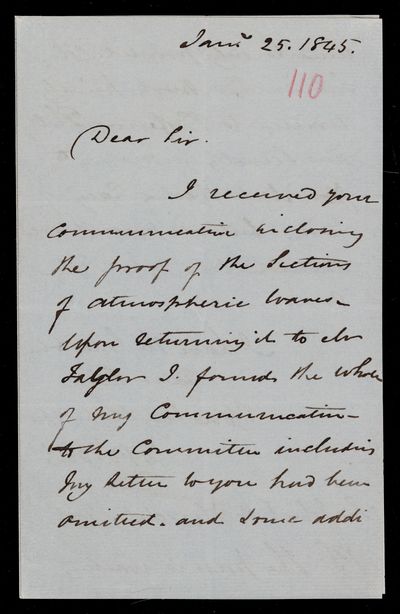 Jany 25. 1845.
110
Dear Sir.
I received your
Communication inclosing
the proof of the Sections
of atmospheric waves –
Upon returning it to Mr
Taylor I. found the whole
of my Communication –
to the Committee including
my letter to you had been
omitted. and some addi